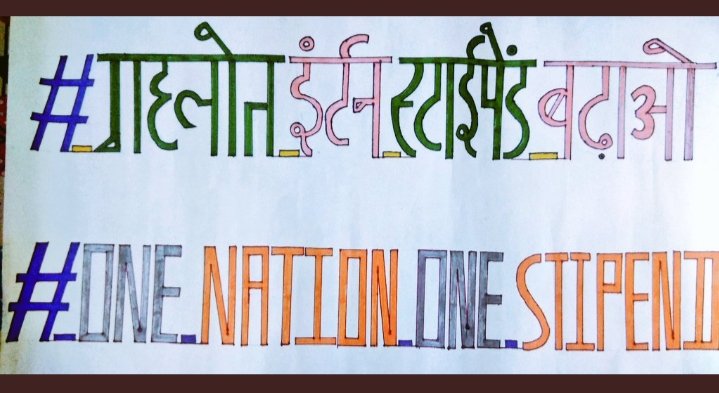 #_ग्रहलोत_इंर्टन_स्टाईपेंड_बढ़ाओ
#_ONE_NATION_ONE_STIPEND